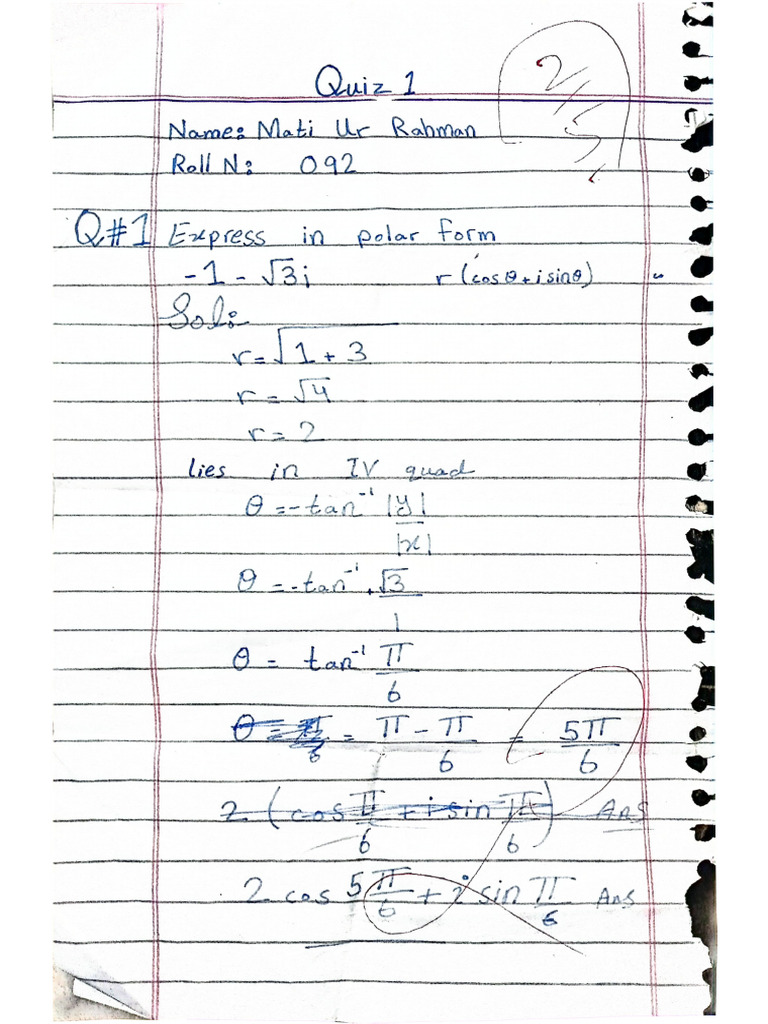 Quiz 1
2/5
Name: Mati Ur Rahman
Roll N: 092
Q#1 Express in polar form
-1 - √3i r(cosθ + i sinθ)
Sol:
r = √1 + 3
r = √4
r = 2
lies in IV quad
θ = -tan⁻¹ |y|/|x|
θ = -tan⁻¹ √3/1
θ = tan⁻¹ π/6
θ = π/6 = π - π/6 = 5π/6
2 (cos π/6 + i sin π/6) Ans
2 cos 5π/6 + i sin π/6 Ans